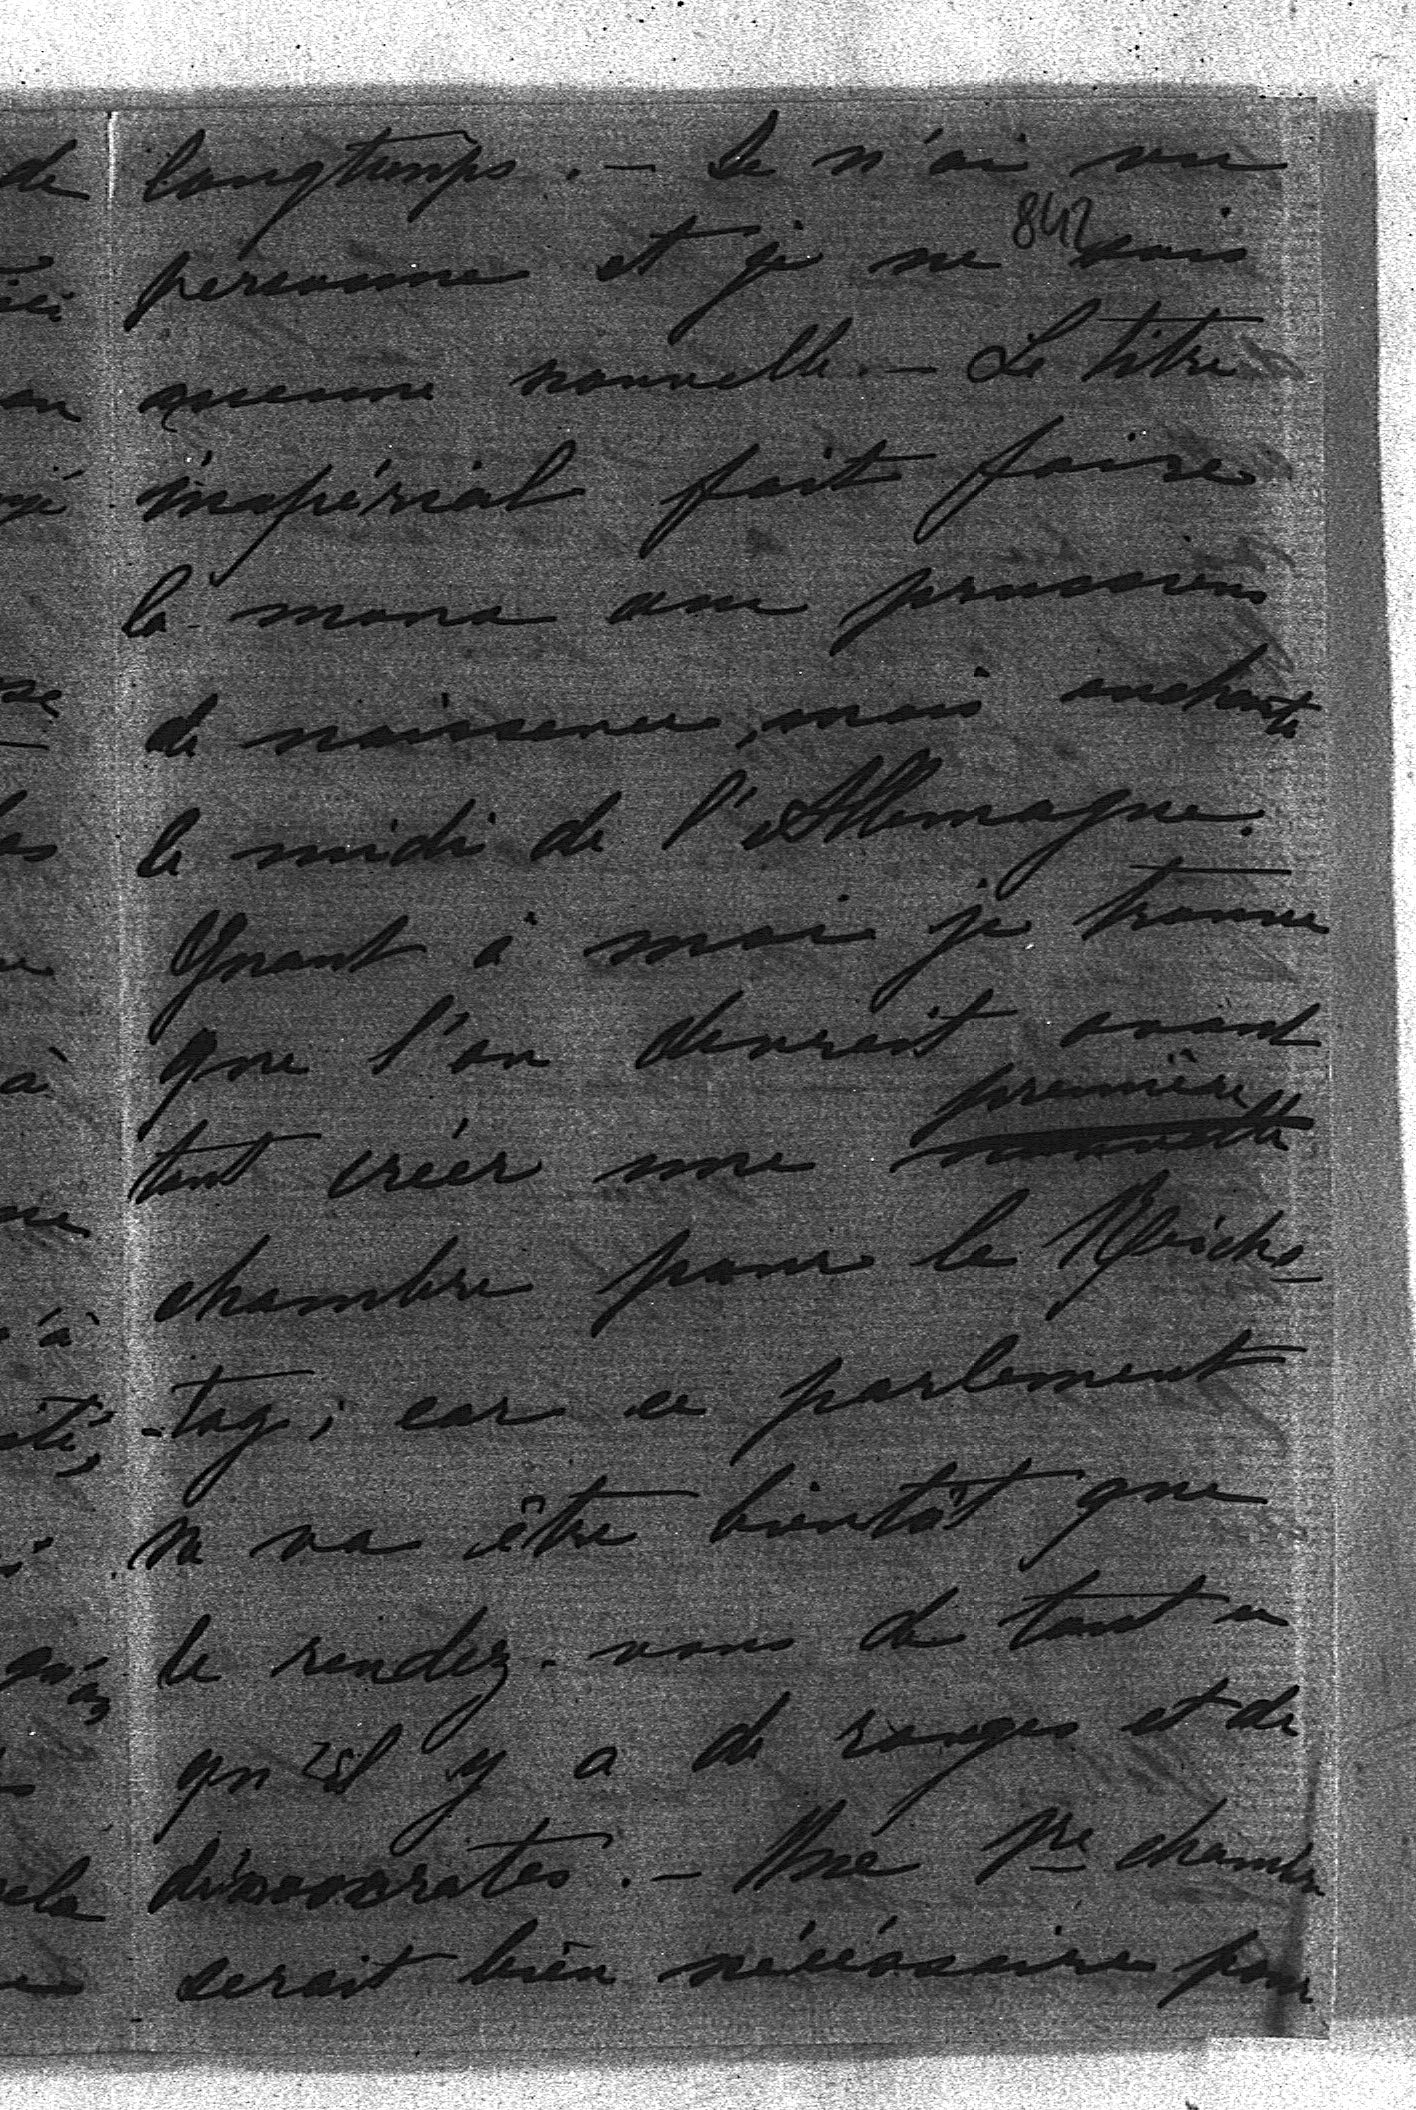 longtemps. — Je n'ai vu
842
personne et je ne sais
aucune nouvelle. — Le titre
impérial fait faire
la moue aux prussiens
de naissance, mais enchante
le midi de l'Allemagne.
Quant à moi je trouve
que l'on devrait avant
première
tout créer une nouvelle
chambre pour le Reichs-
-tag; car ce parlement
ne va être bientôt que
le rendez-vous de tout ce
qu'il y a de rouges et de
démocrates. — Une 1re chambre
serait bien nécéssaire pour